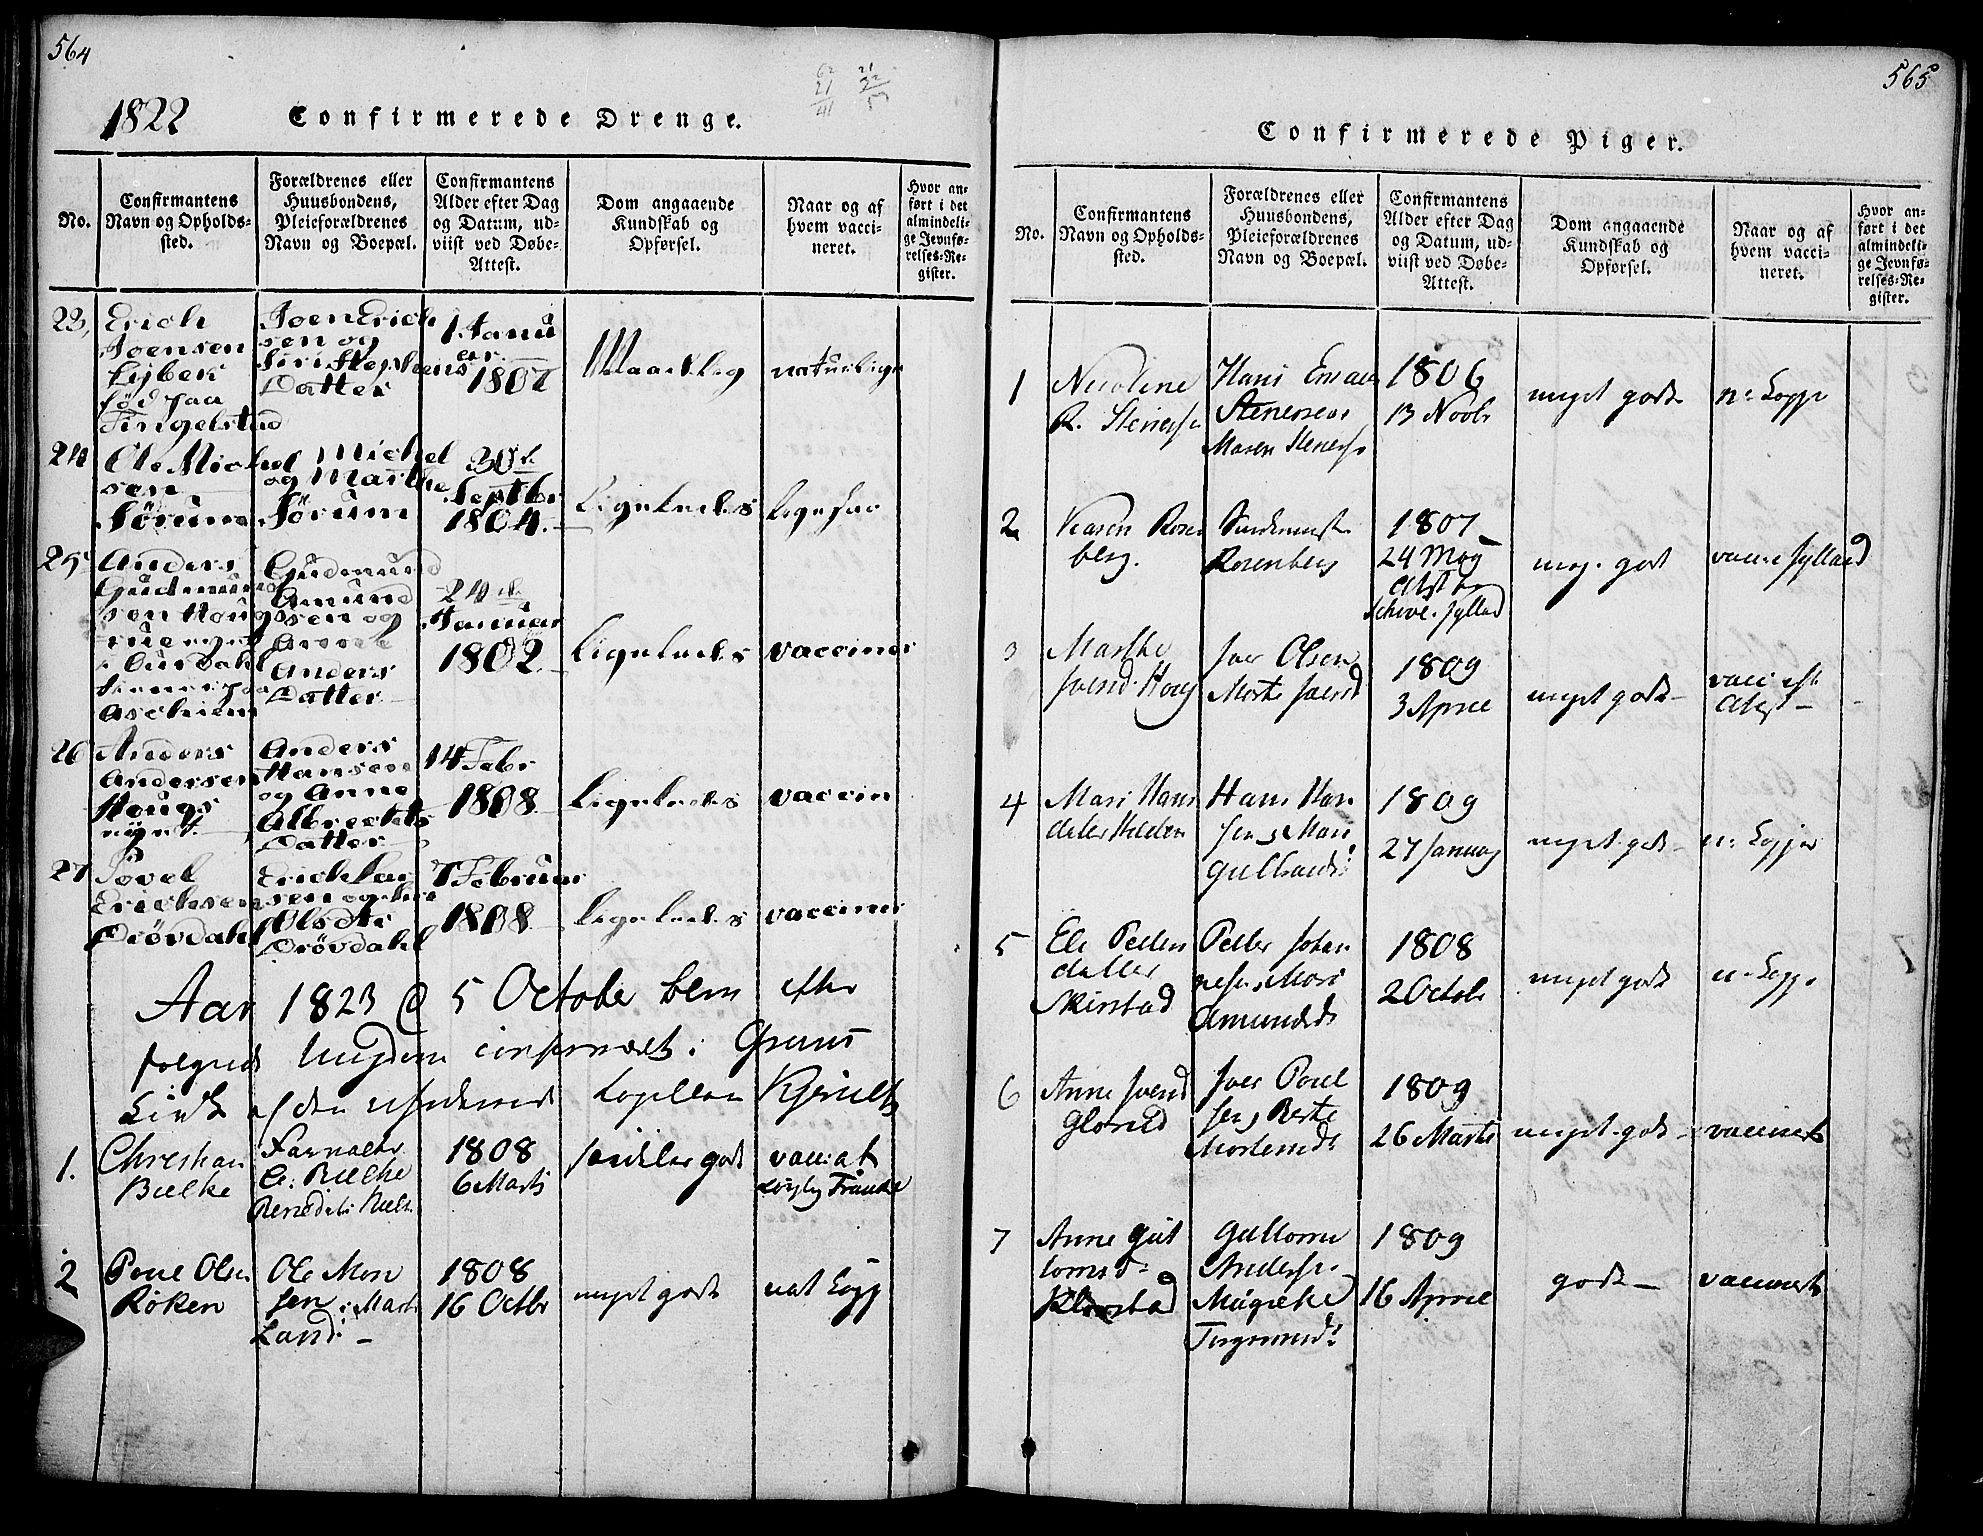 564
1822
Confirmerede Drenge.
No.
Confirmantens
Navn og Opholds-
sted.
Forældrenes eller
Huusbondens,
Pleieforældrenes
Navn og Boepæl.
Confirmantens
Alder efter Dag
og Datum, ud-
viist ved Døbe-
Attest.
Dom angaaende
Kundskab og
Opførsel.
Naar og af
hvem vacci-
neret.
Hvor an-
ført i det
almindeli-
ge Jevnfø-
relses-Re-
gister.
23,
Erich
Joensen
Lijbek
fød paa
Tingelstad
Joen Erich
sen og
Siri Stephens
Datter
1. Janu
ar
1807
Maadelig
naturlige
24
Ole Michel
sen
Jörum
Michel
og Marthe
Jörum
30te
Septbr
1804.
Ligeledes
Ligesaa
25
Anders
Gudmund
sen Houg
Aurdahl
Gudmund
Amund
sen og
Anders
Datter
24de
Januar
1802.
Ligeledes
vacciner
26
Anders
Andersen
Hougs
Anders
Hansen
og Anne
Albrechts
Datter
14 Febr
1808.
Ligeledes
vaccin
27
Povel
Erichsen
Drövdahl
Erich Lar
sen og
Olsdtr
Drövdahl
7 Februar
1808.
Ligeledes
vacciner
Aar 1823 d 5 October blev efter
følgende Ungdom confirmeret i Grans
Kirke af den
1.
Christian
Bielke
E. Bielke
1808
6 Marts
god
vacc. at
2
Poul Olsen
Røken
Ole Mon
sen
Land
1808
16 Octbr
meget godt
nat Kopp
565
Confirmerede Piger.
No.
Confirmantens
Navn og Opholds-
sted.
Forældrenes eller
Huusbondens,
Pleieforældrenes
Navn og Boepæl.
Confirmantens
Alder efter Dag
og Datum, ud-
viist ved Døbe-
Attest.
Dom angaaende
Kundskab og
Opførsel.
Naar og af
hvem vacci-
neret.
Hvor an-
ført i det
almindeli-
ge Jevnfø-
relses-Re-
gister.
1
Nicoline
R. Stenersen
Hans
Stenersen
Maren Stenersen
1806
13 Novbr
meget godt
n: Kopper
2
Karen Rosen
berg.
Rosenberg
1807
24 May
Attst fra
Schive. Jylland
meg. godt
vacc. i Jylland
3
Marthe
Iversd. Houg
Iver Olsen
Marte Iversd
1809
3 April
meget godt
vacc. eft
Attest
4
Mari Hans
datter Helden
Hans Han
sen, Mari
Gulbrandsd:
1809
27 January
meget godt
n: Kopper
5
Eli Peders
datter
Skirstad
Peder Johan
nesen, Mari
Amundsdt
1808
2 Octobr
meget godt
n. Kopper
6
Anne Iversd
Glorud
Iver Poul
sen, Berte
Mortensdt
1809
26 Marts
meget godt
vaccineret
7
Anne Gut
tormsd.
Klaestad
Guttorm
Andersen
Torgersend:
1809
16 April
godt
vaccineret